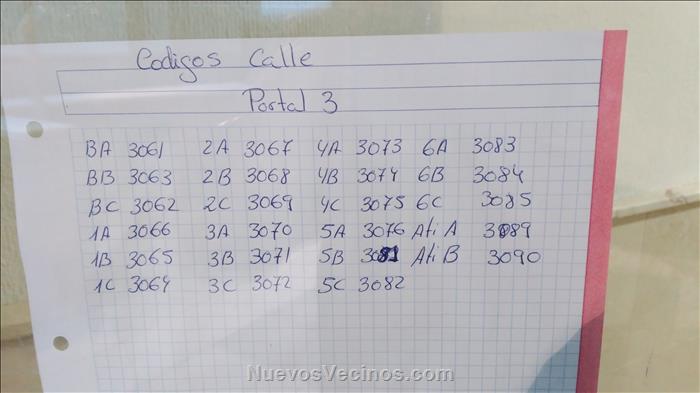 Codigos Calle
Portal 3
BA 3061 2A 3067 4A 3073 6A 3083
BB 3063 2B 3068 4B 3074 6B 3084
BC 3062 2C 3069 4C 3075 6C 3085
1A 3066 3A 3070 5A 3076 Ati A 3089
1B 3065 3B 3071 5B 3081 Ati B 3090
1C 3064 3C 3072 5C 3082
NuevosVecinos.com